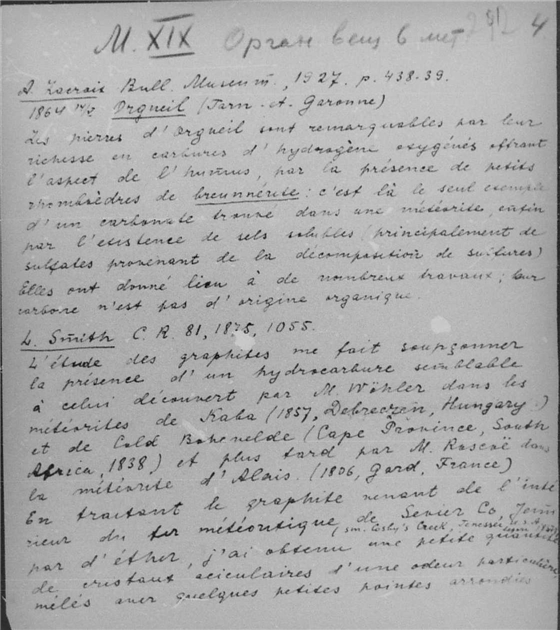 М. XIX Орган вещ в мет 4
A. Lacroix Bull. Museum, 1927. p. 438-39.
1864 14/V Orgueil (Tarn-et-Garonne)
Les pierres d'Orgueil sont remarquables par leur
richesse en carbures d'hydrogène oxygénés offrant
l'aspect de l'humus, par la présence de petits
rhomboèdres de breunnérite: c'est là le seul exemple
d'un carbonate trouvé dans une météorite, enfin
par l'existence de sels solubles (principalement de
sulfates provenant de la décomposition de sulfures)
Elles ont donné lieu à de nombreux travaux; leur
carbone n'est pas d'origine organique.
L. Smith C. R. 81, 1875, 1055.
L'étude des graphites me fait soupçonner
la présence d'un hydrocarbure semblable
à celui découvert par M. Wöhler dans les
météorites de Kaba (1857, Debreczen, Hungary.)
et de Cold Bokenelde (Cape Province, South
Africa, 1838) et plus tard par M. Roscoë dans
la météorite d'Alais. (1806, Gard, France)
En traitant le graphite venant de l'inté
rieur du fer météoritique de Sevier Co, Tenn
(sm. Cosby's Creek, Tennessee U.S.A.
par d'éther, j'ai obtenu une petite quantité
de cristaux aciculaires d'une odeur particulière
mêlés avec quelques petites pointes arrondies